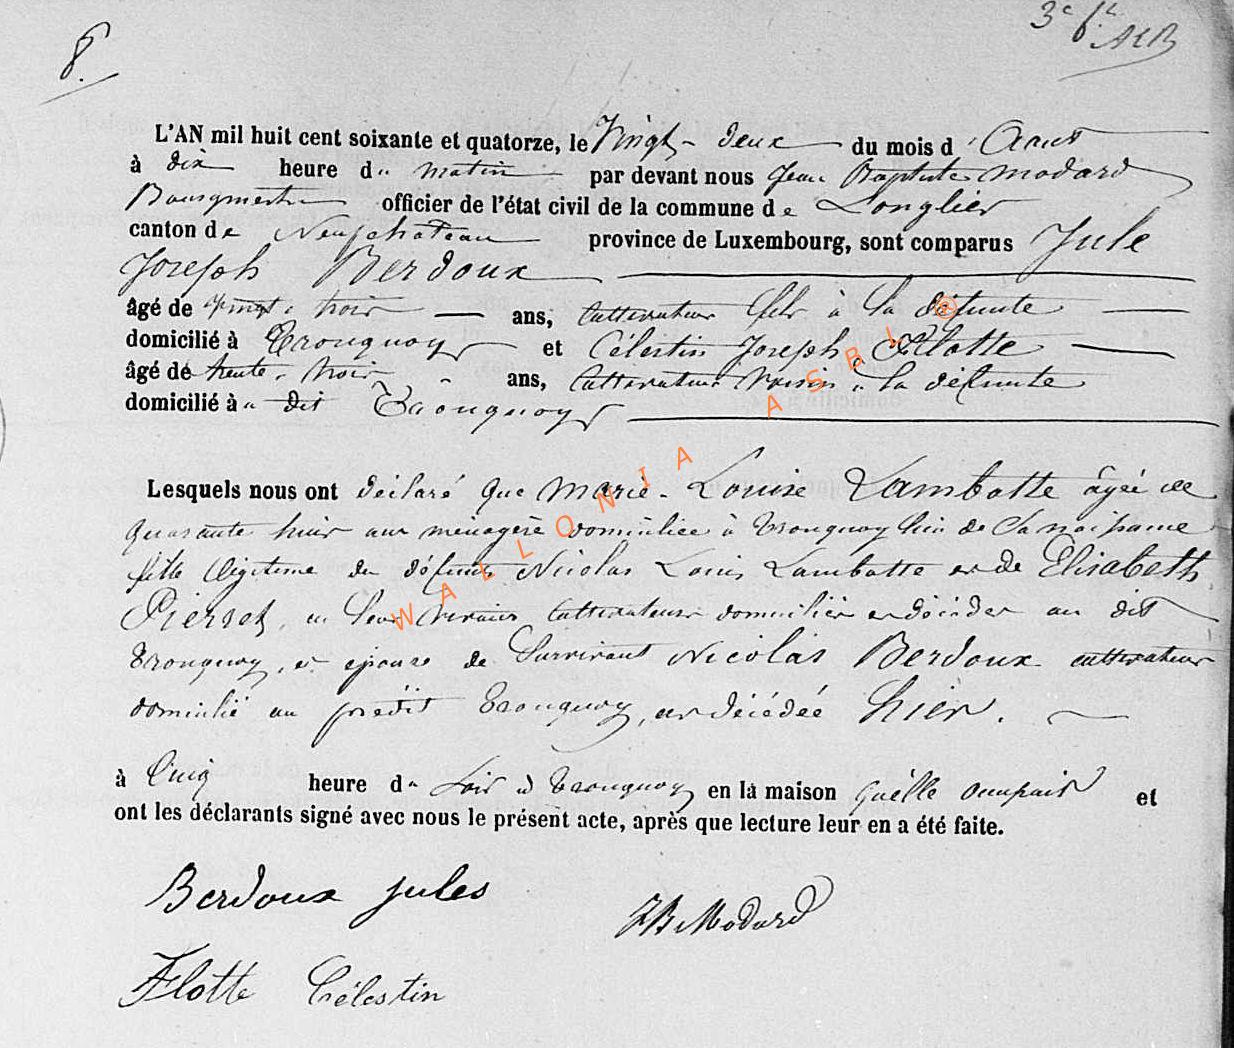 8.
3e f.t
L'AN mil huit cent soixante et quatorze, le Vingt-deux du mois d'Aout
à dix heure du matin par devant nous Jean Baptiste Modard
Bourgmestre officier de l'état civil de la commune de Longlier
canton de Neufchateau province de Luxembourg, sont comparus Jule
Joseph Berdoux
âgé de vingt-trois ans, Cultivateur fils à la défunte
domicilié à Tronquoy et Célestin Joseph Flotte
âgé de trente-trois ans, Cultivateur voisin à la défunte
domicilié à u dit Tronquoy
Lesquels nous ont déclaré que Marie-Louise Lambotte âgée de
quarante huit ans ménagère domiciliée à Tronquoy lieu de sa naissance
fille légitime du défunt Nicolas Louis Lambotte et de Elisabeth
Pierret, en leur vivant Cultivateurs domiciliés et décédés au dit
Tronquoy, et épouse de Survivant Nicolas Berdoux cultivateur
domicilié au prédit Tronquoy, est décédée hier.
à Cinq heure du Soir à Tronquoy en la maison quélle occupait et
ont les déclarants signé avec nous le présent acte, après que lecture leur en a été faite.
Berdoux Jules
JB Modard
Flotte Célestin
WALLONIA ASBL ©